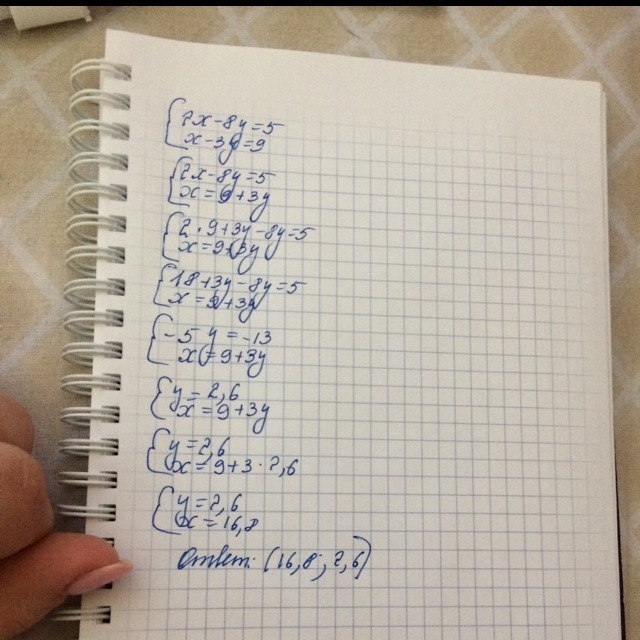 2x-8y=5
x-3y=9
2x-8y=5
x=9+3y
2·9+3y-8y=5
x=9+3y
18+3y-8y=5
x=9+3y
-5y=-13
x=9+3y
y=2,6
x=9+3y
y=2,6
x=9+3·2,6
y=2,6
x=16,8
Ответ: (16,8; 2,6)